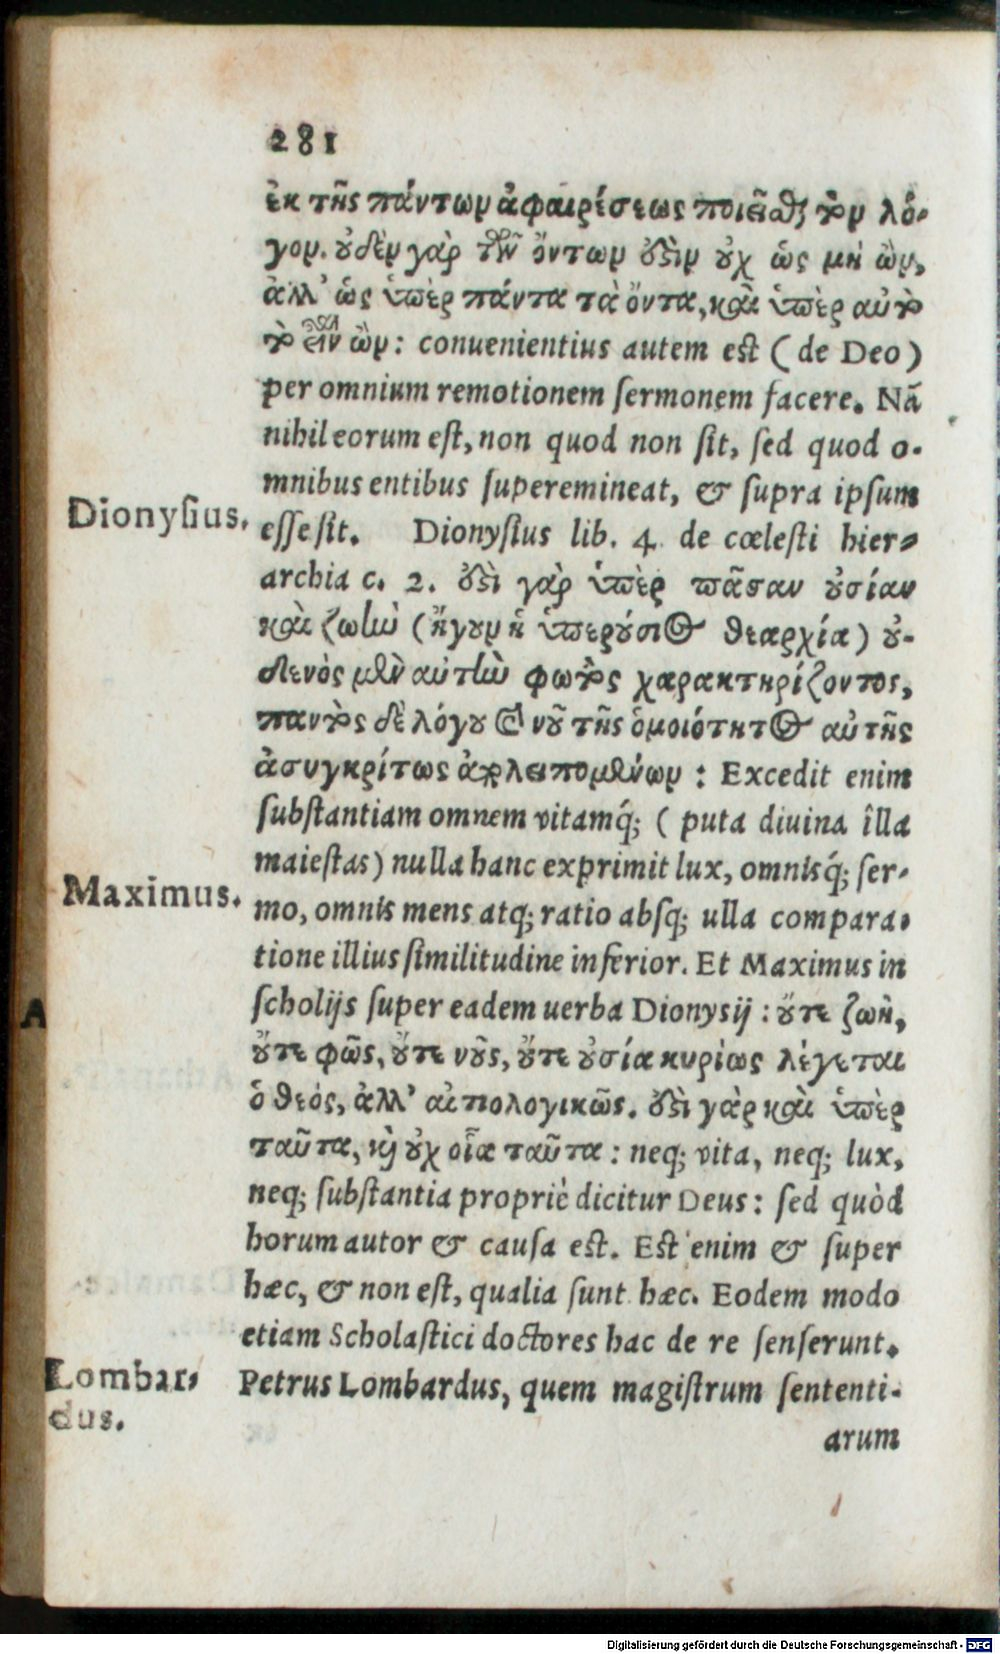 281
ἐκ τῆς πάντων ἀφαιρέσεως ποιεῖσθαι τὸν λό-
γον. οὐδὲν γὰρ τῶν ὄντων ἐστὶν οὐχ ὡς μὴ ὢν,
ἀλλ' ὡς ὑπὲρ πάντα τὰ ὄντα, καὶ ὑπὲρ αὐτὸ
τὸ εἶναι ὢν: conuenientius autem est (de Deo)
per omnium remotionem sermonem facere. Nā
nihil eorum est, non quod non sit, sed quod o-
mnibus entibus superemineat, & supra ipsum
Dionysius.
esse sit. Dionysius lib. 4 de cœlesti hier-
archia c. 2. ἐστὶ γὰρ ὑπὲρ πᾶσαν οὐσίαν
καὶ ζωὴν (ἤγουν ἡ ὑπερούσιος θεαρχία) οὐ-
δενὸς μὲν αὐτὴν φωτὸς χαρακτηρίζοντος,
παντὸς δὲ λόγου καὶ νοῦ τῆς ὁμοιότητος αὐτῆς
ἀσυγκρίτως ἀπολειπομένων: Excedit enim
substantiam omnem vitamq́; (puta diuina illa
maiestas) nulla hanc exprimit lux, omnisq́; ser-
Maximus.
mo, omnis mens atq; ratio absq; ulla compara-
tione illius similitudine inferior. Et Maximus in
scholijs super eadem uerba Dionysij: οὔτε ζωὴ,
A
οὔτε φῶς, οὔτε νοῦς, οὔτε οὐσία κυρίως λέγεται
ὁ θεός, ἀλλ' αἰτιολογικῶς. ἐστὶ γὰρ καὶ ὑπὲρ
ταῦτα, καὶ οὐχ οἷα ταῦτα: neq; vita, neq; lux,
neq; substantia propriè dicitur Deus: sed quòd
horum autor & causa est. Est enim & super
hæc, & non est, qualia sunt hæc. Eodem modo
etiam Scholastici doctores hac de re senserunt.
Lombar-
dus.
Petrus Lombardus, quem magistrum sententi-
arum
Digitalisierung gefördert durch die Deutsche Forschungsgemeinschaft - DFG